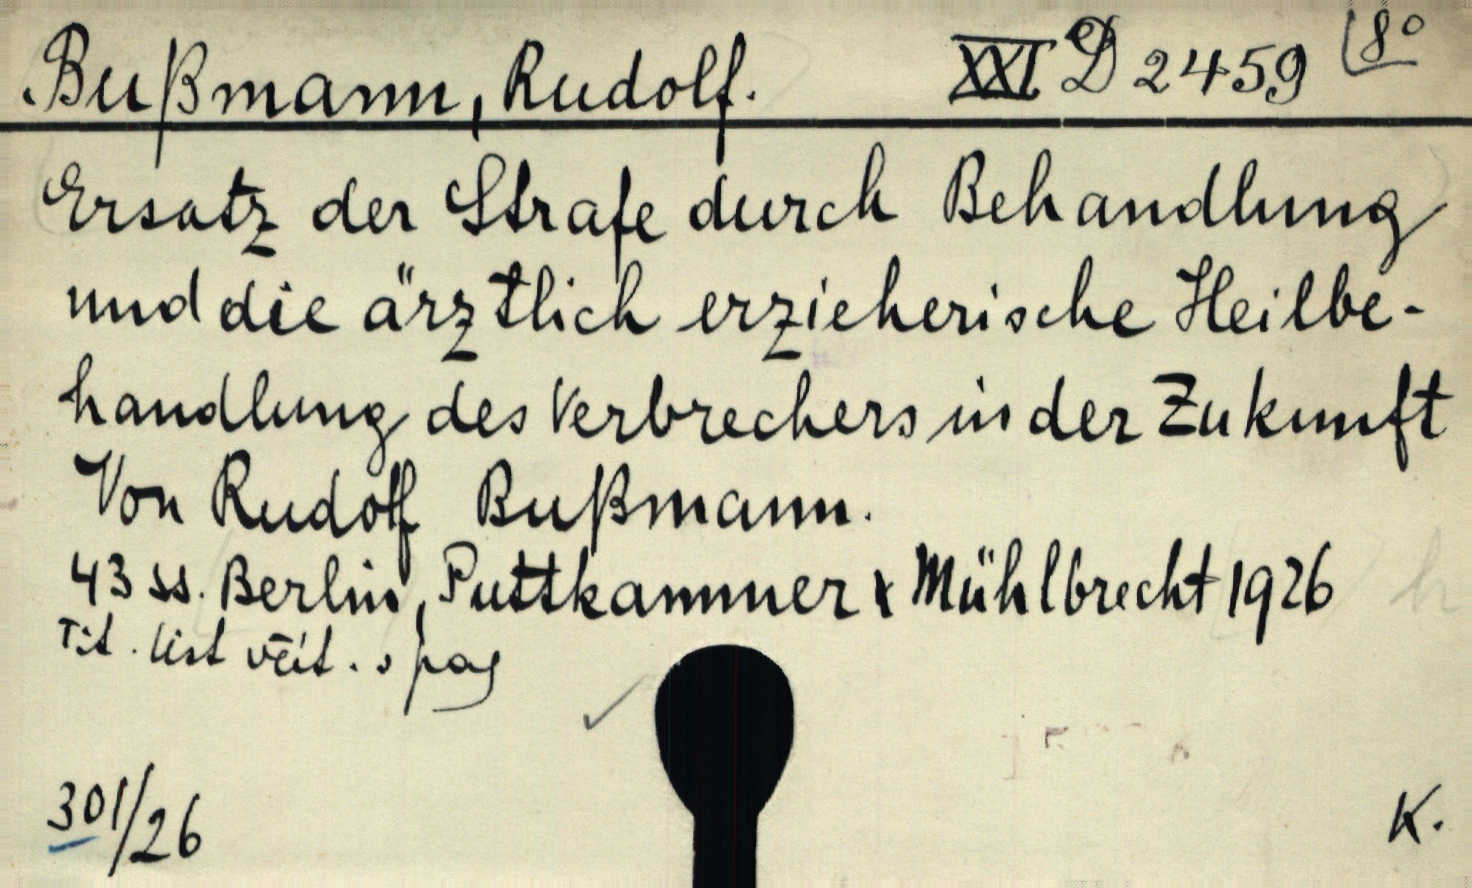 Bußmann, Rudolf. XXI D 2459 8°
Ersatz der Strafe durch Behandlung
und die ärztlich erzieherische Heilbe-
handlung des Verbrechers in der Zukunft
Von Rudolf Bußmann.
43 ss. Berlin, Puttkammer & Mühlbrecht 1926
Tit.
301/26 K.